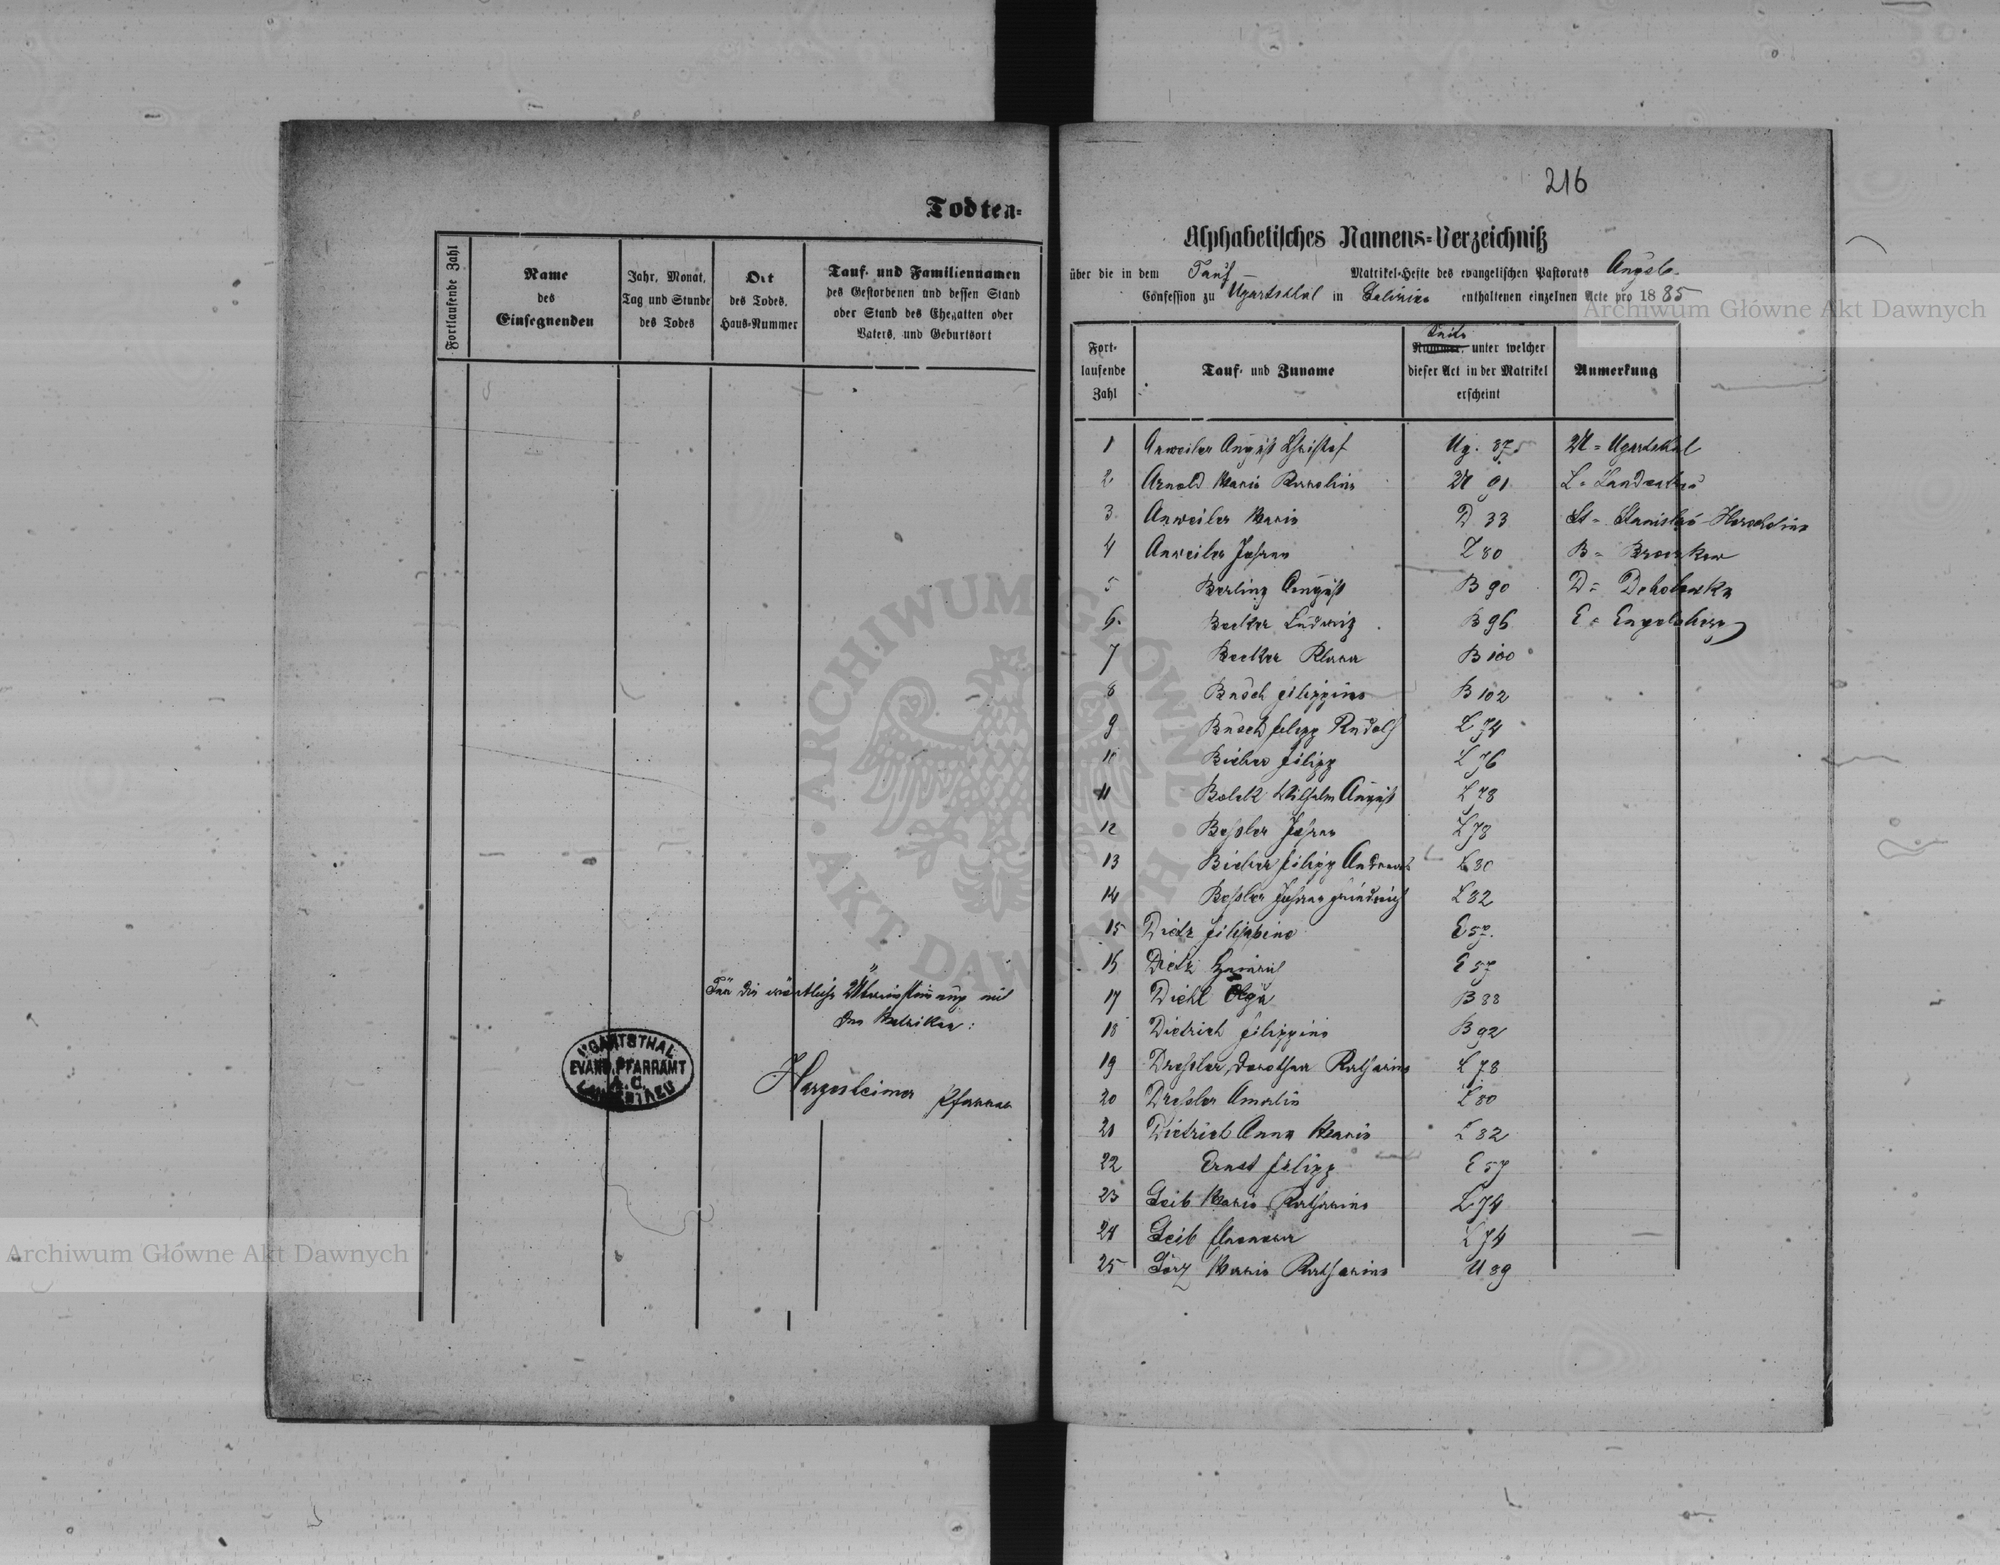 Todten-
Fortlaufende Zahl
Name
des
Einsegnenden
Jahr, Monat,
Tag und Stunde
des Todes
Ort
des Todes,
Haus-Nummer
Tauf- und Familiennamen
des Gestorbenen und dessen Stand
oder Stand des Ehegatten oder
Vaters, und Geburtsort
Für die wörtliche Übereinstimmung mit
den Matriken:
UGARTSTHAL
EVANG. PFARRAMT
A. C.
Hargesheimer Pfarrer
216
Alphabetisches Namens-Verzeichniß
über die in dem Tauf- Matrikel-Hefte des evangelischen Pastorats Augsb.
Confession zu Ugartsthal in Galizien enthaltenen einzelnen Acte pro 1885
Fort-
laufende
Zahl
Tauf- und Zuname
Seite
Nummer, unter welcher
dieser Act in der Matrikel
erscheint
Anmerkung
1 Anweiler August Christof Ug. 87 U = Ugartsthal
2 Arnold Maria Karolina U 91 L = Landestreu
3 Anweiler Maria D 33 St =
4 Anweiler Johann L 80 B =
5 Berling August B 90 D = Debolowka
6. Becker Ludwig B 96 E = Engelsberg
7 Becker Klara B 100
8 Busch Filippina B 102
9 Busch Filipp Rudolf L 74
10 Bieber Filipp L 76
11 Bolek Wilhelm August L 78
12 Bessler Johann L 78
13 Bieber Filipp Andreas L 80
14 Bessler Johann Friedrich L 82
15 Dietz Filippine E 57.
16 Dietz Heinrich E 57
17 Diehl Olga B 88
18 Dietrich Filippina B 92
19 Dressler Dorothea Katharina L 78
20 Dressler Amalia L 80
21 Dietrich Anna Maria L 82
22 Ernst Filipp E 57
23 Geib Maria Katharina L 74
24 Geib Eleonora L 74
25 Görz Maria Katharina U 89
ARCHIWUM GŁÓWNE AKT DAWNYCH
Archiwum Główne Akt Dawnych
Archiwum Główne Akt Dawnych